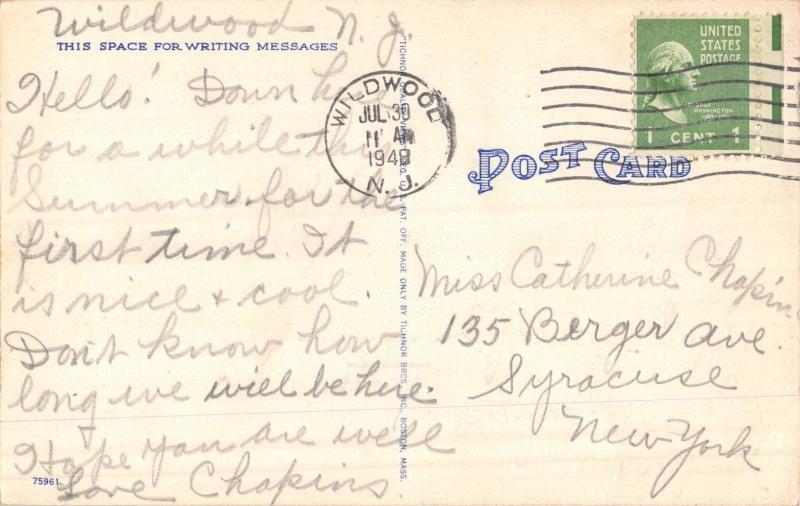 Wildwood N. J.
THIS SPACE FOR WRITING MESSAGES
Hello! Down here
for a while this
Summer for the
first time. It
is nice & cool.
Don't know how
long we will be here.
Hope you are well
Love Chapins.
75961
TICHNOR QUALITY VIEWS REG. U. S. PAT. OFF. MADE ONLY BY TICHNOR BROS. INC., BOSTON, MASS.
WILDWOOD
JUL 30
11 AM
1948
N. J.
UNITED
STATES
POSTAGE
GEORGE
WASHINGTON
1 CENT 1
POST CARD
Miss Catherine Chapin
135 Berger Ave.
Syracuse
New York